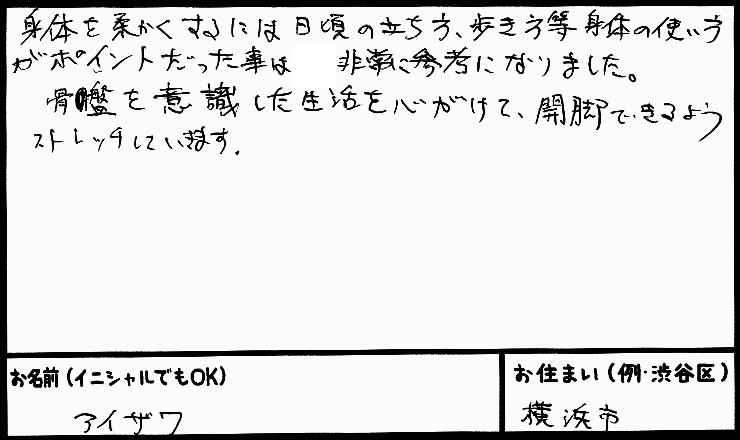 身体を柔かくするには日頃の立ち方、歩き方等身体の使い方
がポイントだった事は 非常に参考になりました。
骨盤を意識した生活を心がけて、開脚できるよう
ストレッチしていきます.
お名前(イニシャルでもOK)
アイザワ
お住まい(例・渋谷区)
横浜市